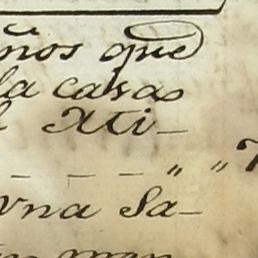 ños que
la casa
Ati-
- - - - " " 7
Vna Sa-